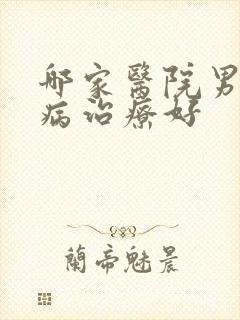 哪家醫院男
病治療好
蘭帝魅晨